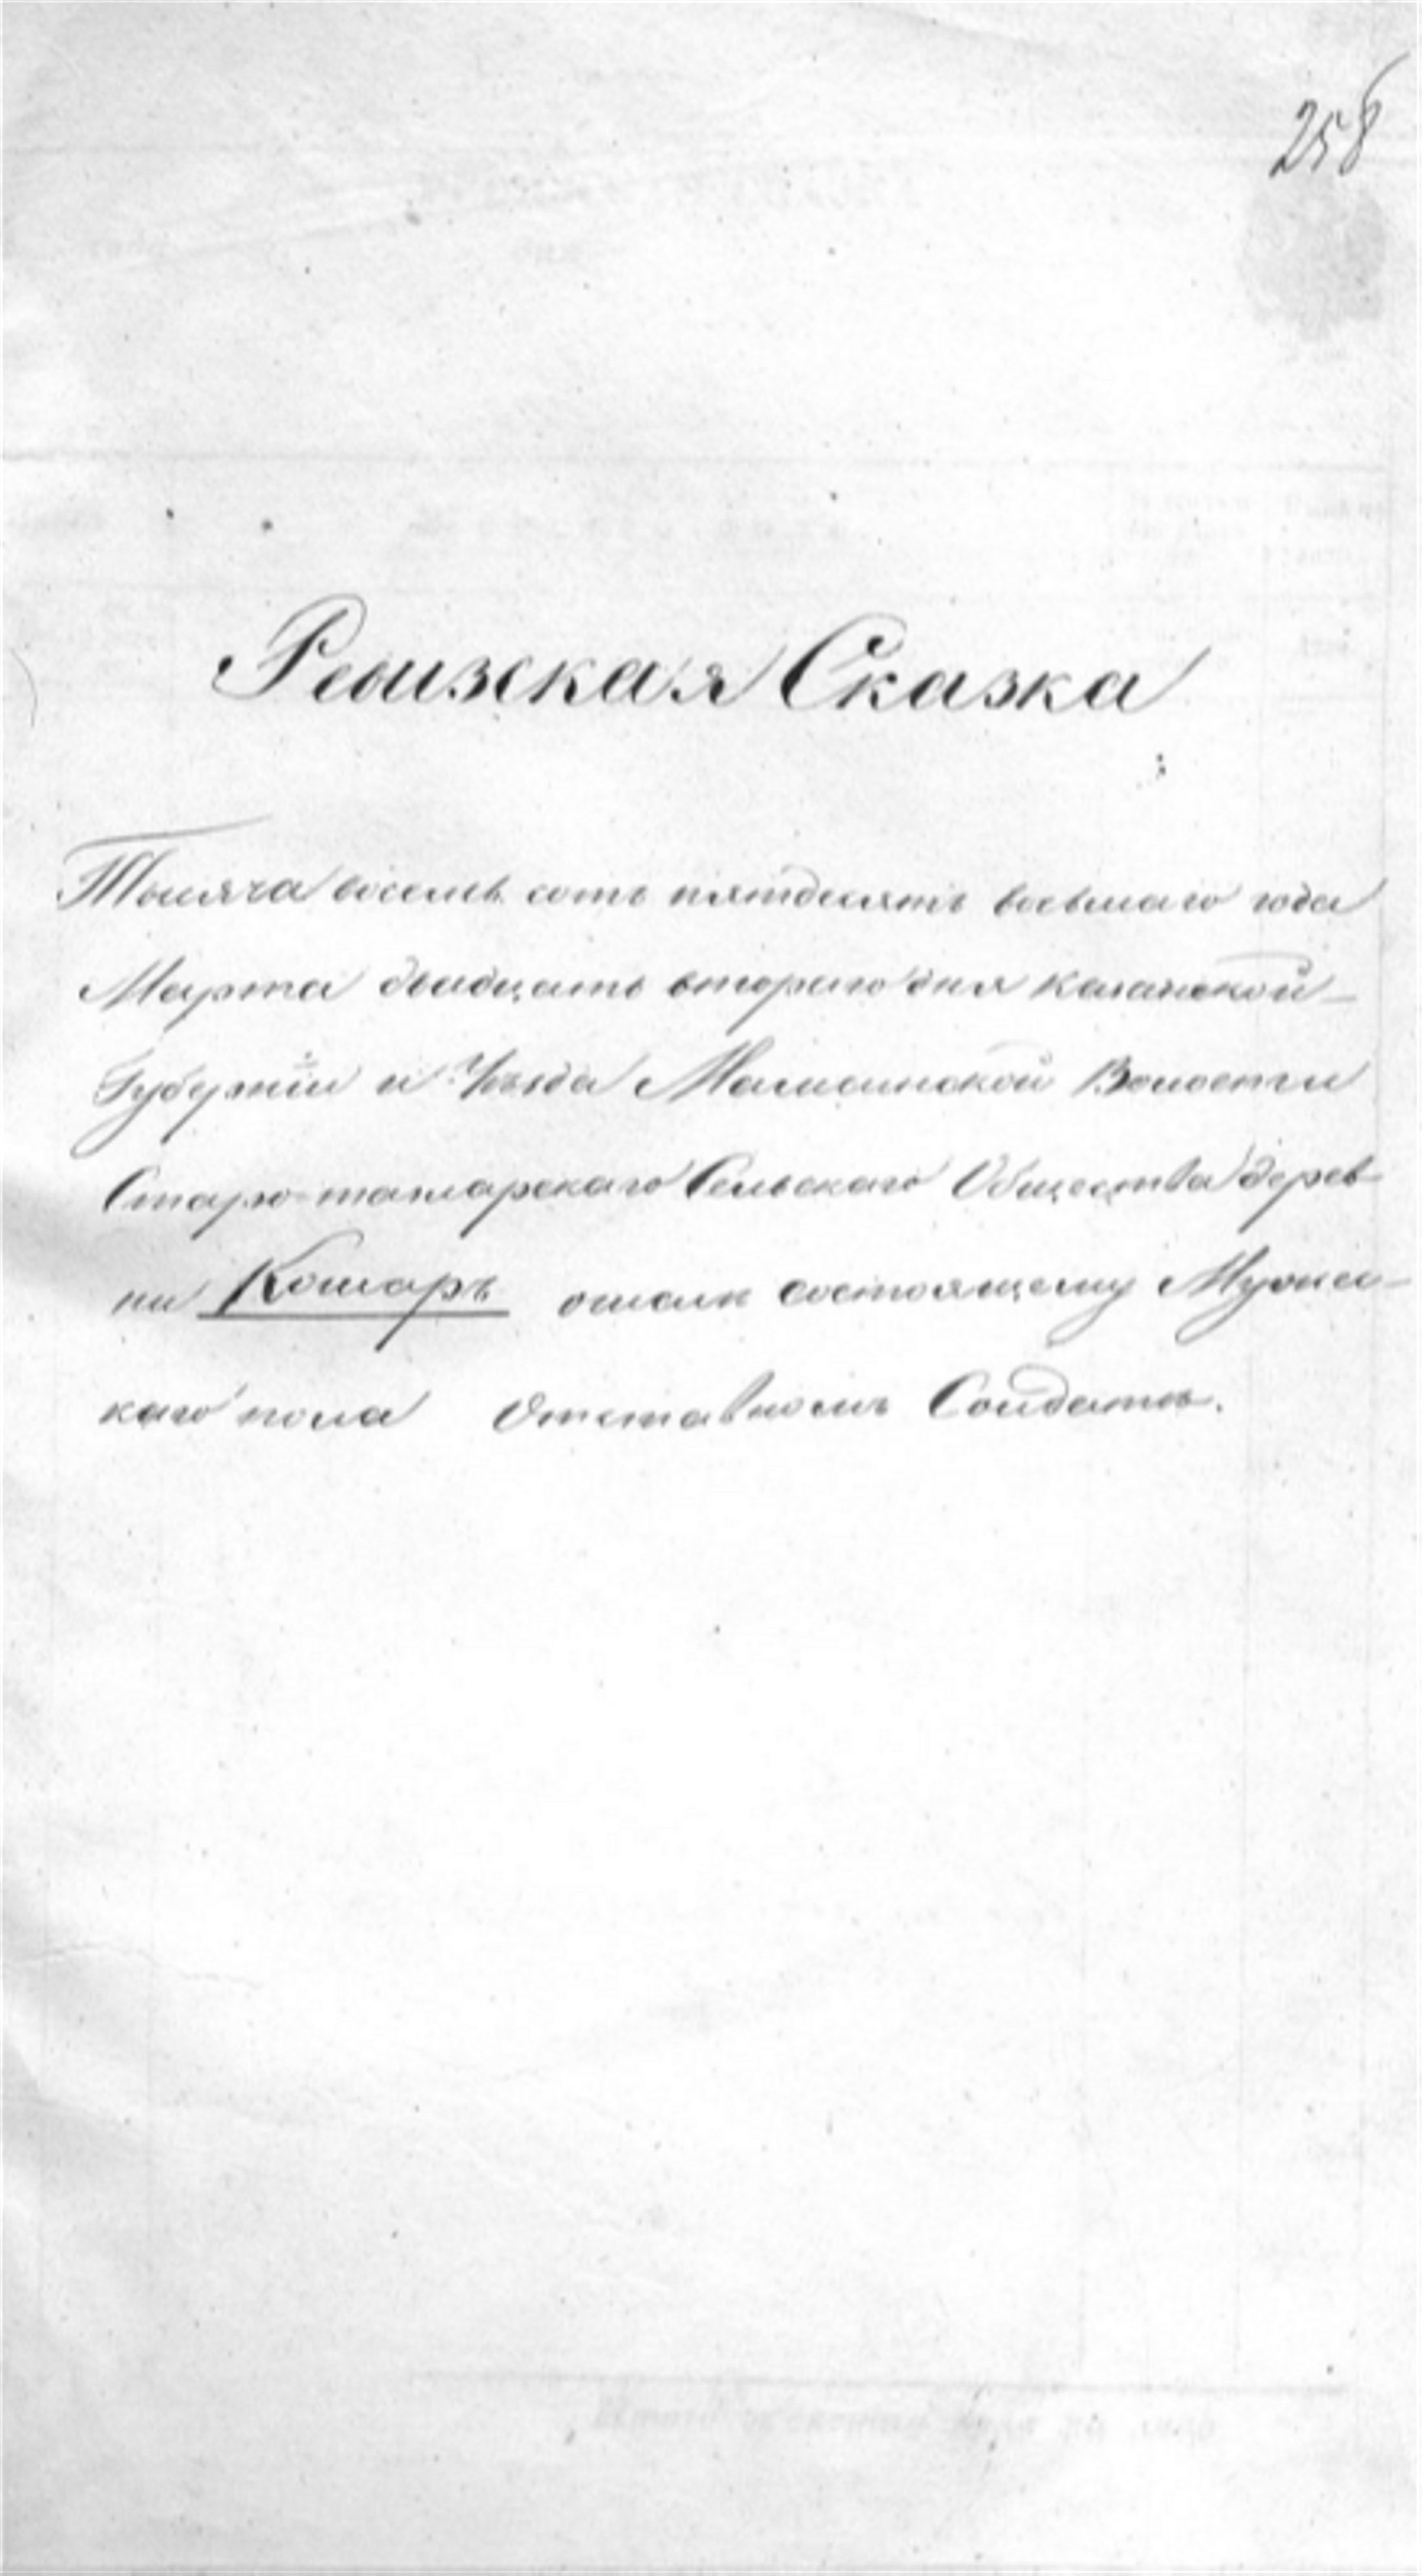 258
Ревизская Сказка
Тысяча восемь сотъ пятдесятъ восьмаго года
Марта двадцать втораго дня Казанской
Губерніи и Уѣзда Мамсинской Волости
Старо-татарскаго Сельскаго Общества дерев
ни Кошаръ о состоящему Мужес
каго пола Отставномъ Солдатѣ.